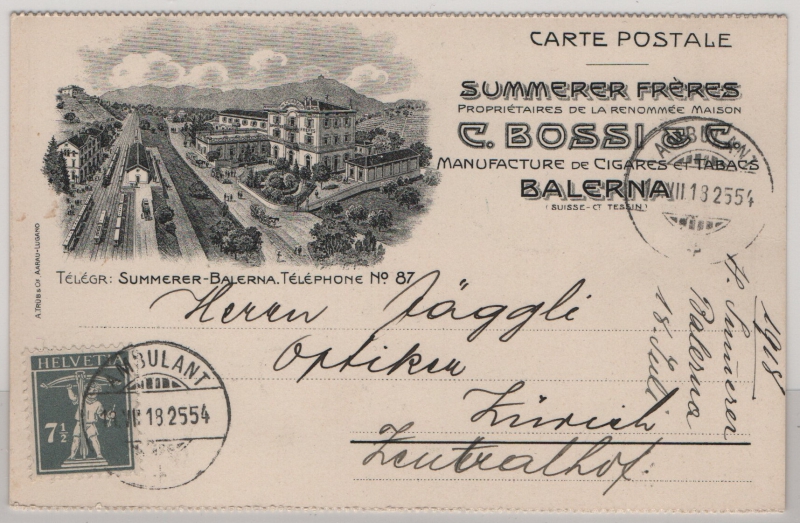 CARTE POSTALE
SUMMERER FRÈRES
PROPRIÉTAIRES DE LA RENOMMÉE MAISON
C. BOSSI & Cº
MANUFACTURE DE CIGARES ET TABACS
BALERNA
(SUISSE - CT TESSIN)
TÉLÉGR: SUMMERER-BALERNA. TÉLÉPHONE Nº 87
A. TRÜB & Cie AARAU-LUGANO
Herrn Jäggli
Optiker
Zürich
Zentralhof.
1918
H. Summerer
Balerna
18. Juli
HELVETIA
7½
AMBULANT
VII 18 2554
VII 18 2554